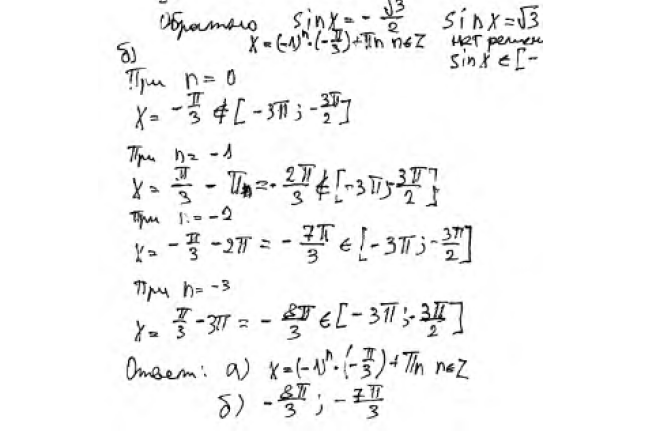 Обратно sinx = -√3/2 sinx = √3
x = (-1)ⁿ · (-π/3) + πn n∈Z нет решен
sinx ∈ [-
б)
При n = 0
x = -π/3 ∉ [-3π; -3π/2]
При n = -1
x = π/3 - π = -2π/3 ∉ [-3π; -3π/2]
при n = -2
x = -π/3 - 2π = -7π/3 ∈ [-3π; -3π/2]
при n = -3
x = π/3 - 3π = -8π/3 ∈ [-3π; -3π/2]
Ответ: а) x = (-1)ⁿ · (-π/3) + πn n∈Z
б) -8π/3; -7π/3